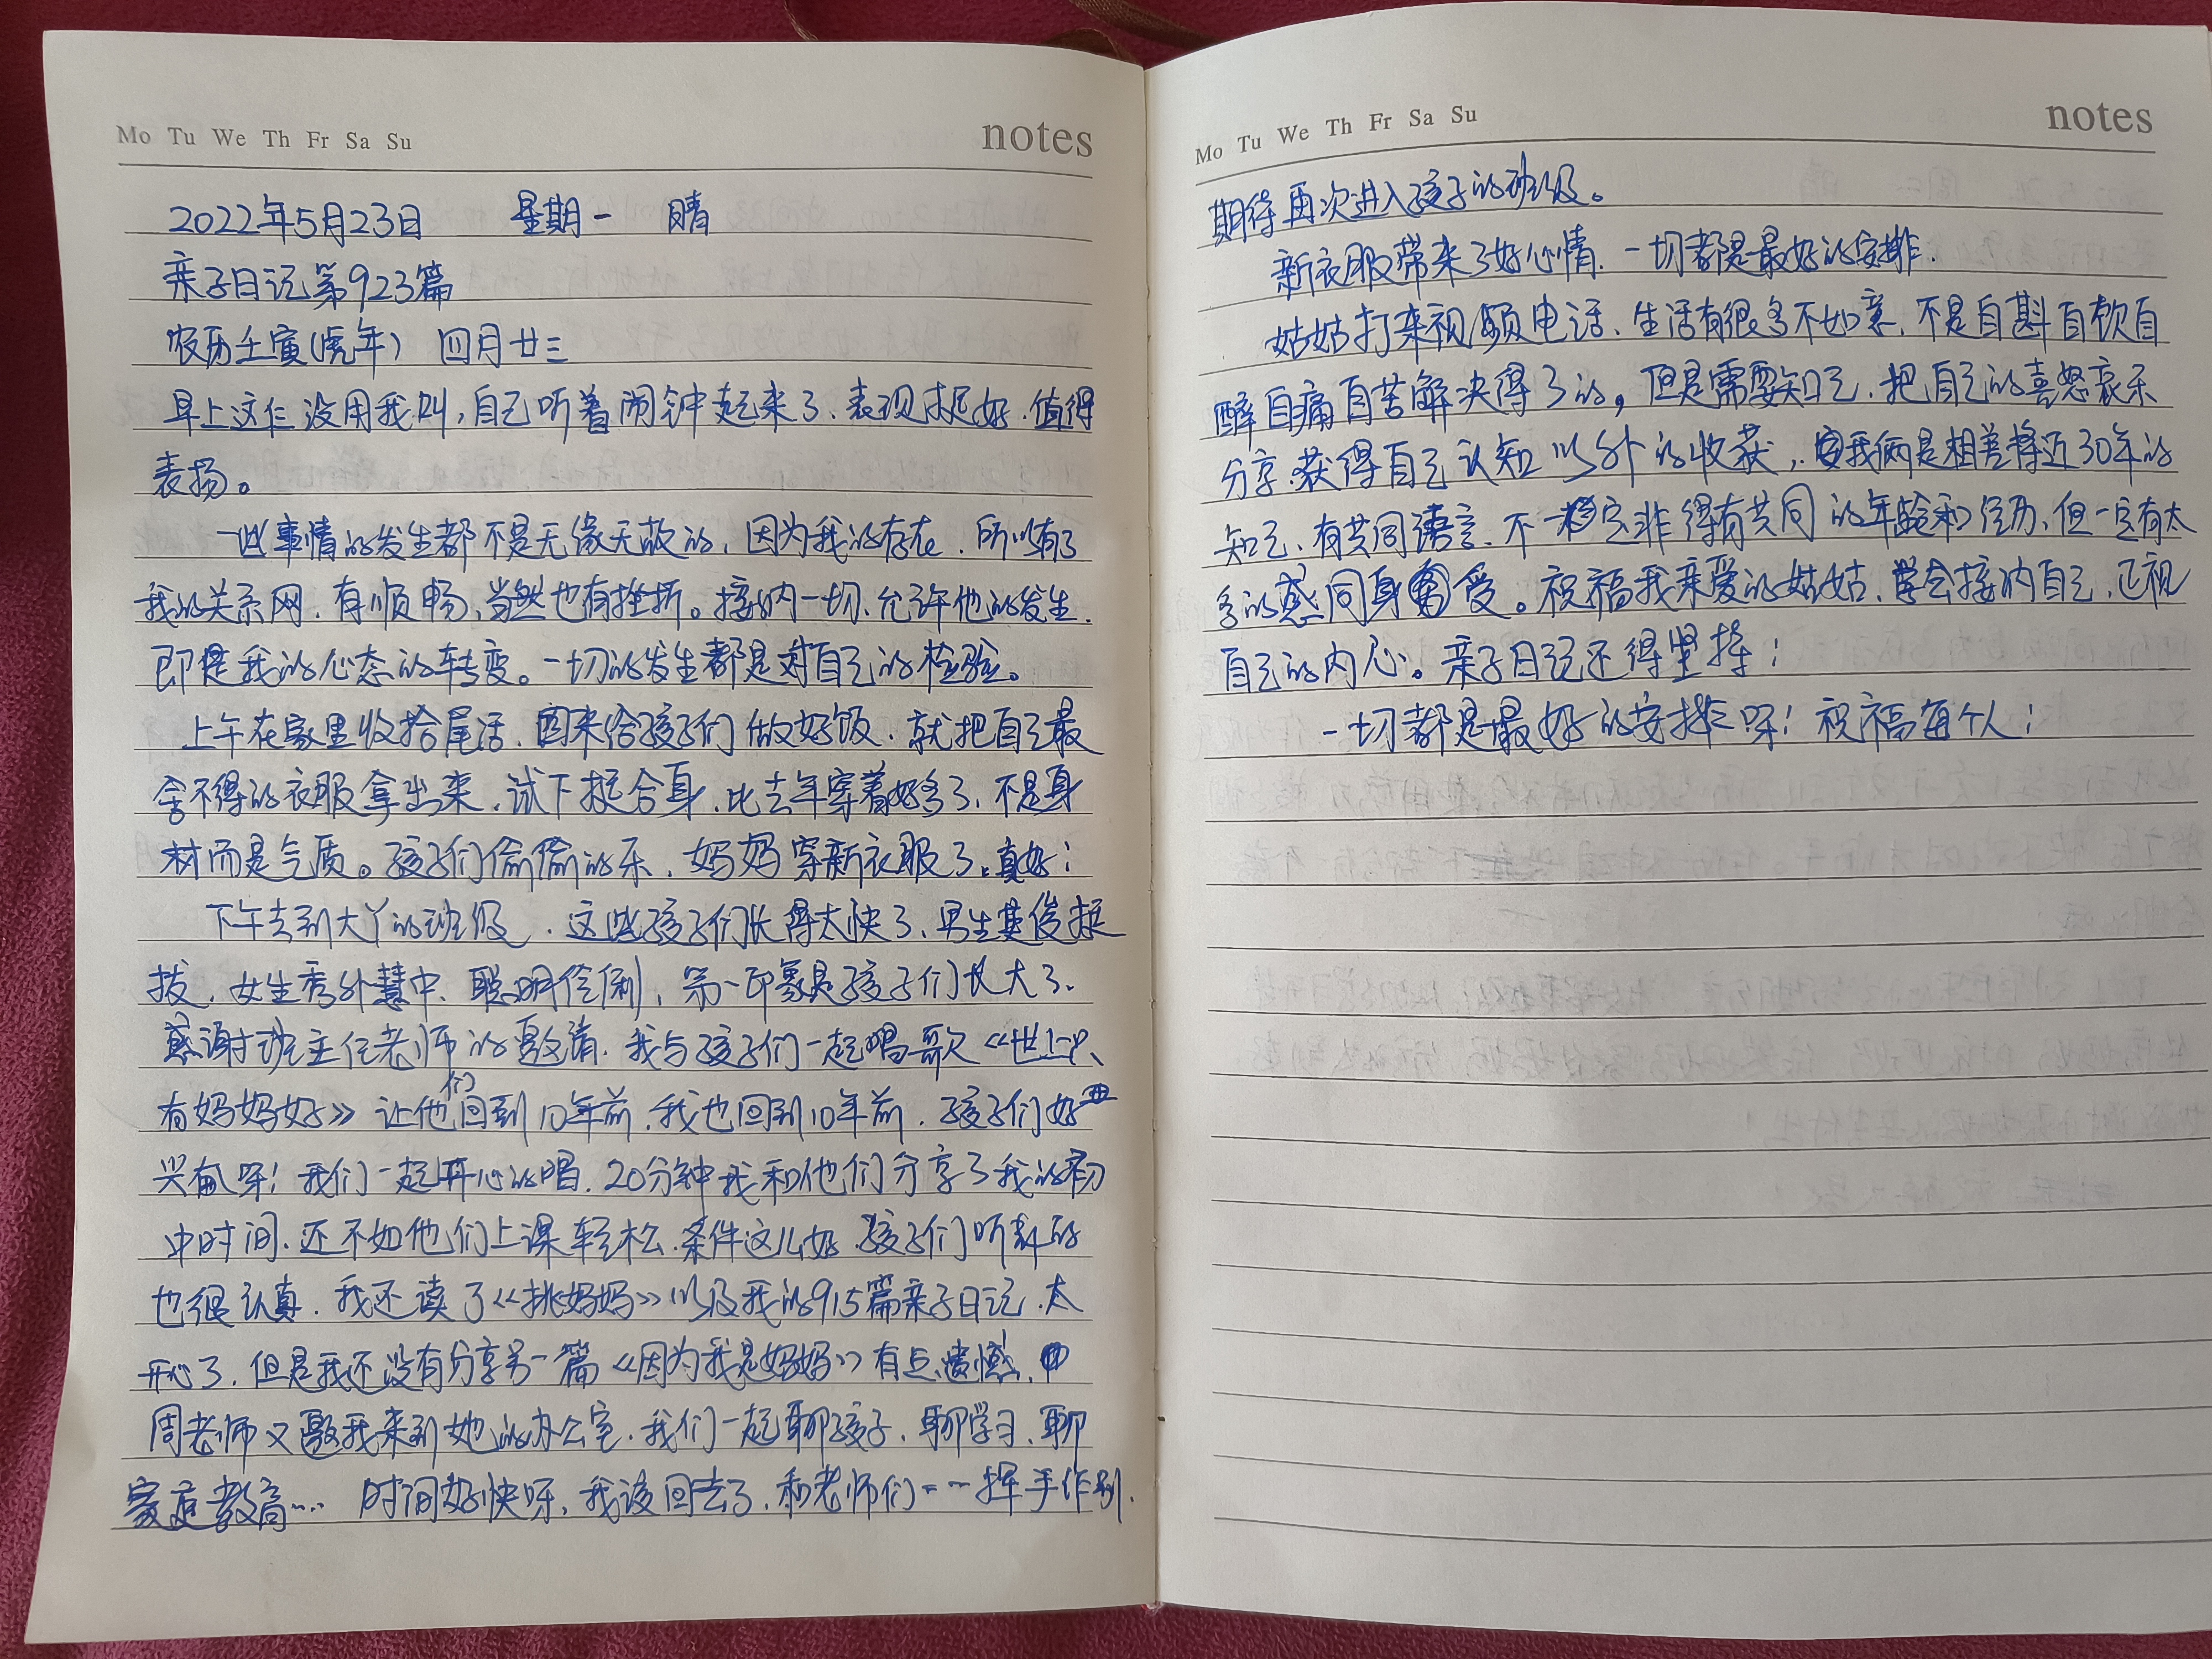 Mo Tu We Th Fr Sa Su notes
2022年5月23日 星期一 晴
亲子日记第923篇
农历壬寅(虎年) 四月廿三
早上这仨没用我叫,自己听着闹钟起来了.表现挺好.值得
表扬。
一些事情的发生都不是无缘无故的,因为我的存在.所以有了
我的关系网.有顺畅,当然也有挫折。接纳一切.允许他的发生.
即是我的心态的转变。一切的发生都是对自己的检验。
上午在家里收拾尾活.回来给孩子们做好饭.就把自己最
舍不得的衣服拿出来.试下挺合身.比去年穿着好多了.不是身
材而是气质。孩子们偷偷的乐.妈妈穿新衣服了.真好!
下午去到大丫的班级.这些孩子们长得太快了、男生英俊挺
拔.女生秀外慧中、聪明伶俐,第一印象是孩子们长大了.
感谢班主任老师的邀请.我与孩子们一起唱歌《世上只
有妈妈好》让他们回到10年前.我也回到10年前.孩子们好
兴奋呀!我们一起开心的唱.20分钟我和他们分享了我的初
中时间.还不如他们上课轻松.条件这么好.孩子们听讲的
也很认真.我还读了《挑妈妈》以及我的915篇亲子日记.太
开心了.但是我还没有分享另一篇《因为我是妈妈》有点遗憾.
周老师又邀我来到她的办公室.我们一起聊孩子.聊学习.聊
家庭教育…. 时间好快呀,我该回去了.和老师们一一挥手作别.
Mo Tu We Th Fr Sa Su notes
期待再次进入孩子的班级。
新衣服带来了好心情.一切都是最好的安排.
姑姑打来视频电话.生活有很多不如意.不是自斟自饮自
醉自痛自苦解决得了的,但是需要知己.把自己的喜怒哀乐
分享.获得自己认知以外的收获,我俩是相差将近30年的
知己.有共同语言.不一定非得有共同的年龄和经历.但一定有太
多的感同身受。祝福我亲爱的姑姑.学会接纳自己.正视
自己的内心。亲子日记还得坚持!
一切都是最好的安排呀!祝福每个人!